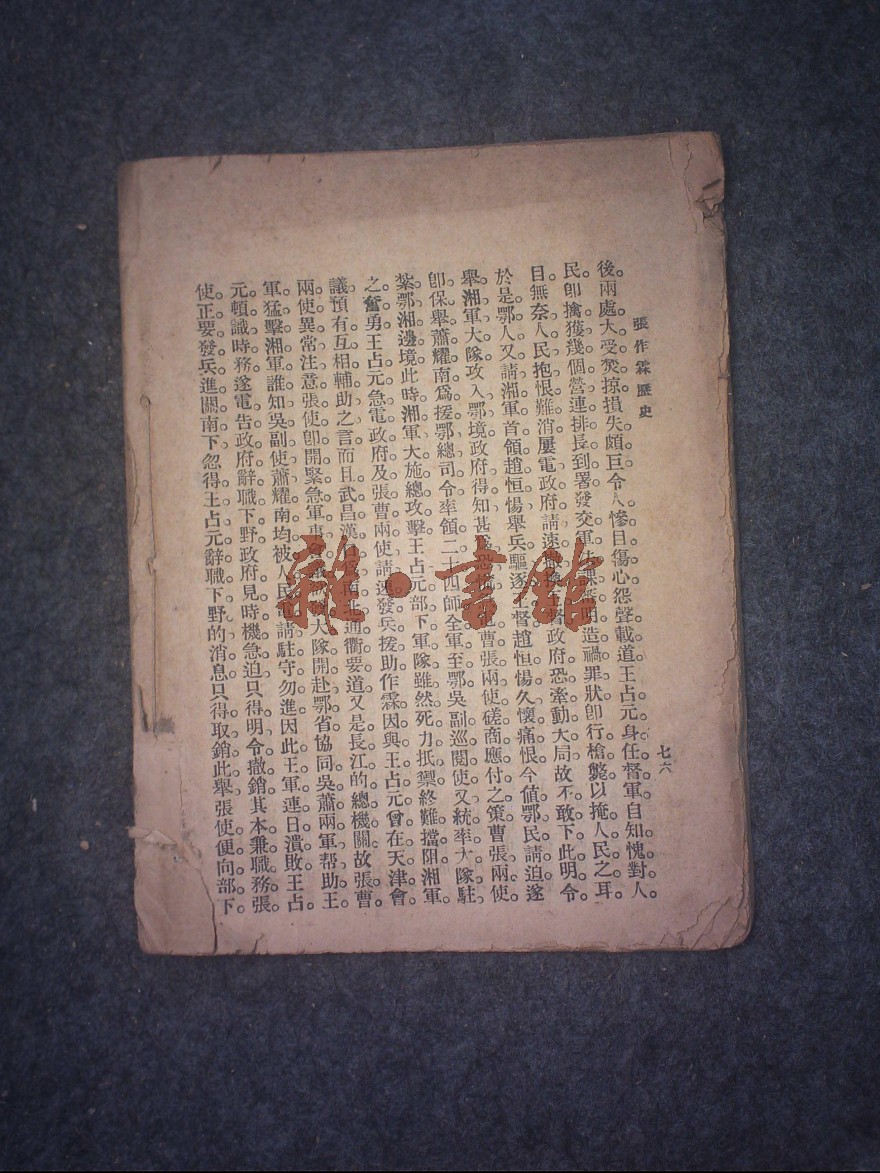 張作霖歷史
七六
後。兩處大受焚掠。損失頗巨。令人慘目傷心。怨聲載道。王占元身任督軍。自知愧對人
民。卽擒獲幾個營連排長到署。發交軍法課。造禍罪狀。卽行槍斃。以掩人民之耳
目。無奈人民抱恨難消。屢電政府。請速撤換王督。政府恐牽動大局。故不敢下此明令。
於是鄂人又請湘軍首領趙恒惕舉兵驅逐王督。趙恒惕久懷痛恨。今値鄂民請迫。遂
舉湘軍大隊攻入鄂境。政府得知。甚爲恐慌。曹張兩使磋商應付之策。曹張兩使
卽保舉蕭耀南爲援鄂總司令。率領二十四師全軍至鄂。吳副巡閱使又統率大隊駐
紮鄂湘邊境。此時湘軍大施總攻擊。王占元部下軍隊。雖然死力抵禦。終難擋阻湘軍
之奮勇。王占元急電政府及張曹兩使。請速發兵援助。作霖因與王占元曾在天津會
議。預有互相輔助之言。而且武昌漢口南北通衢要道。又是長江的總機關。故張曹
兩使異常注意。張使卽開緊急軍事會議。大隊開赴鄂省。協同吳蕭兩軍。帮助王
軍猛擊湘軍。誰知吳副使蕭耀南均被人民電請駐守勿進。因此王軍連日潰敗。王占
元頓識時務。遂電告政府。辭職下野。政府見時機急迫。只得明令撤銷其本兼職務。張
使正要發兵進關南下。忽得王占元辭職下野的消息。只得取銷此舉。張使便向部下
雜·書館